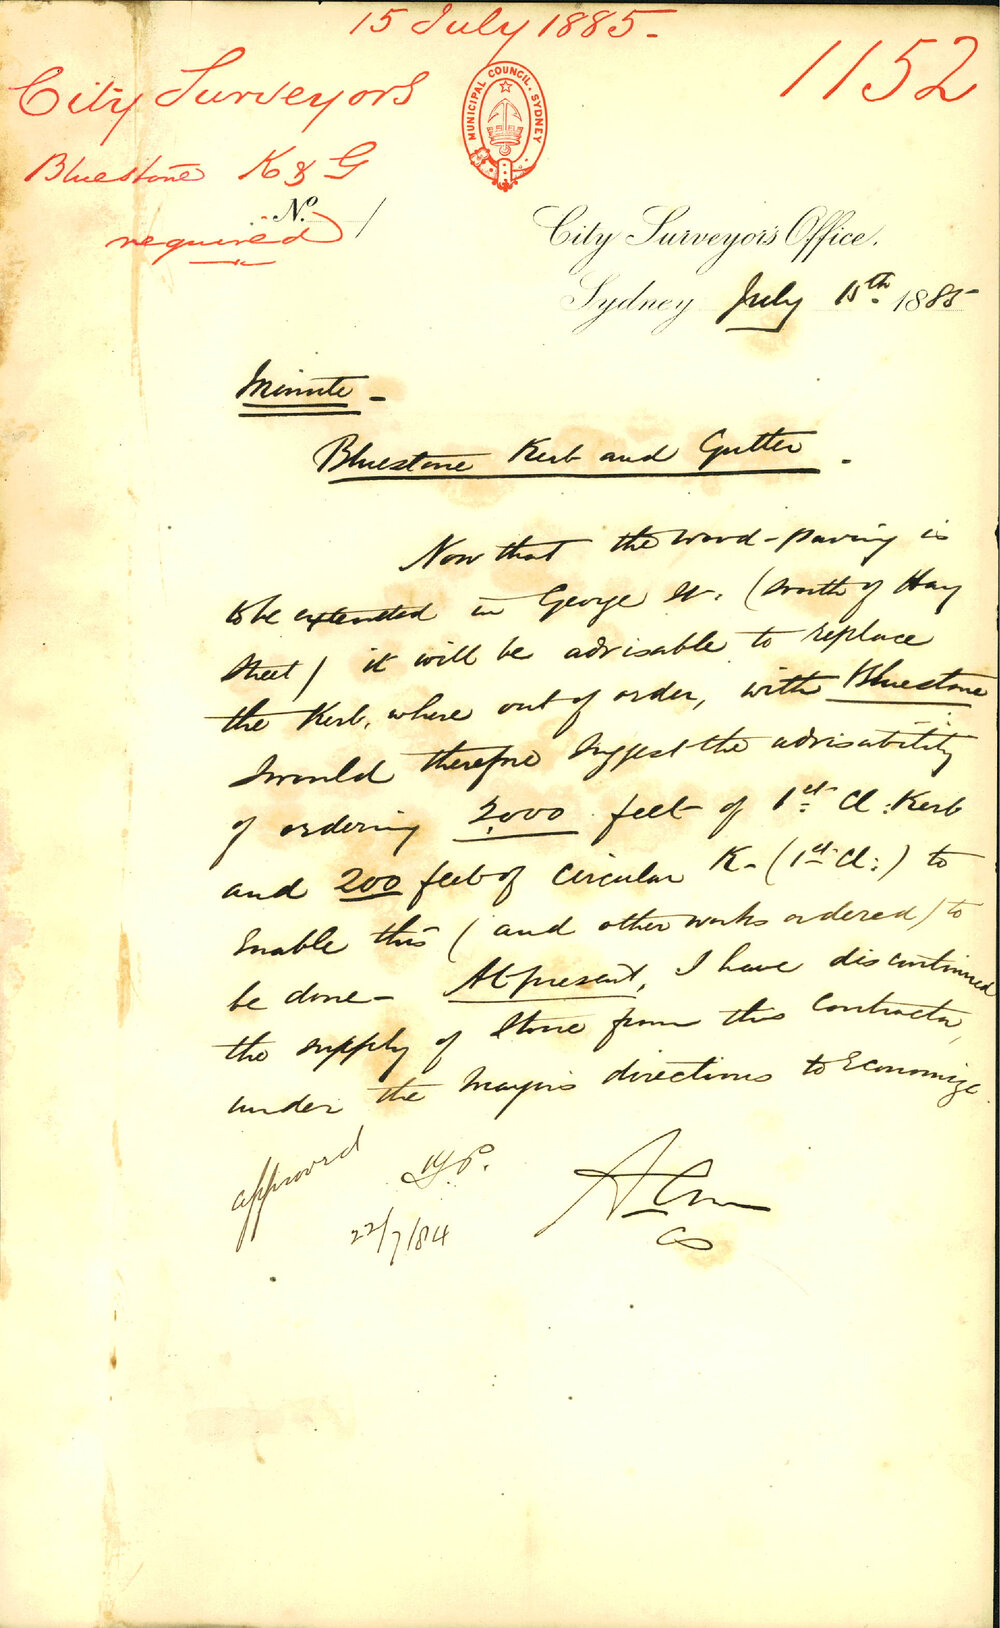 15 July 1885.
1152
City Surveyors
MUNICIPAL COUNCIL. SYDNEY
Bluestone K & G
No.
required
City Surveyor's Office.
Sydney July 15th. 1885
Minute -
Bluestone Kerb and Gutter.
Now that the wood-paving is
to be extended in George St. (south of Hay
Street) it will be advisable to replace
the Kerb, where out of order, with Bluestone
I would therefore suggest the advisability
of ordering 2,000 feet of 1st Cl: Kerb
and 200 feet of circular K- (1st Cl:) to
enable this (and other works ordered) to
be done - At present, I have discontinued
the supply of Stone from this Contractor,
under the Mayor's directions to Economize.
approved
22/7/84
CS